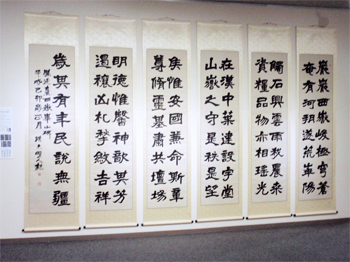 巖巖西嶽峻極穹蒼
奄有河朔遂荒華陽
觸石興雲雨我農桑
資糧品物亦相瑤光
在漢中葉建設宇堂
山嶽之守是秩是望
侯惟安國兼命斯章
尊脩靈基肅共壇場
明德惟馨神歆其芳
遏禳凶札揫斂吉祥
歲其有年民說無疆